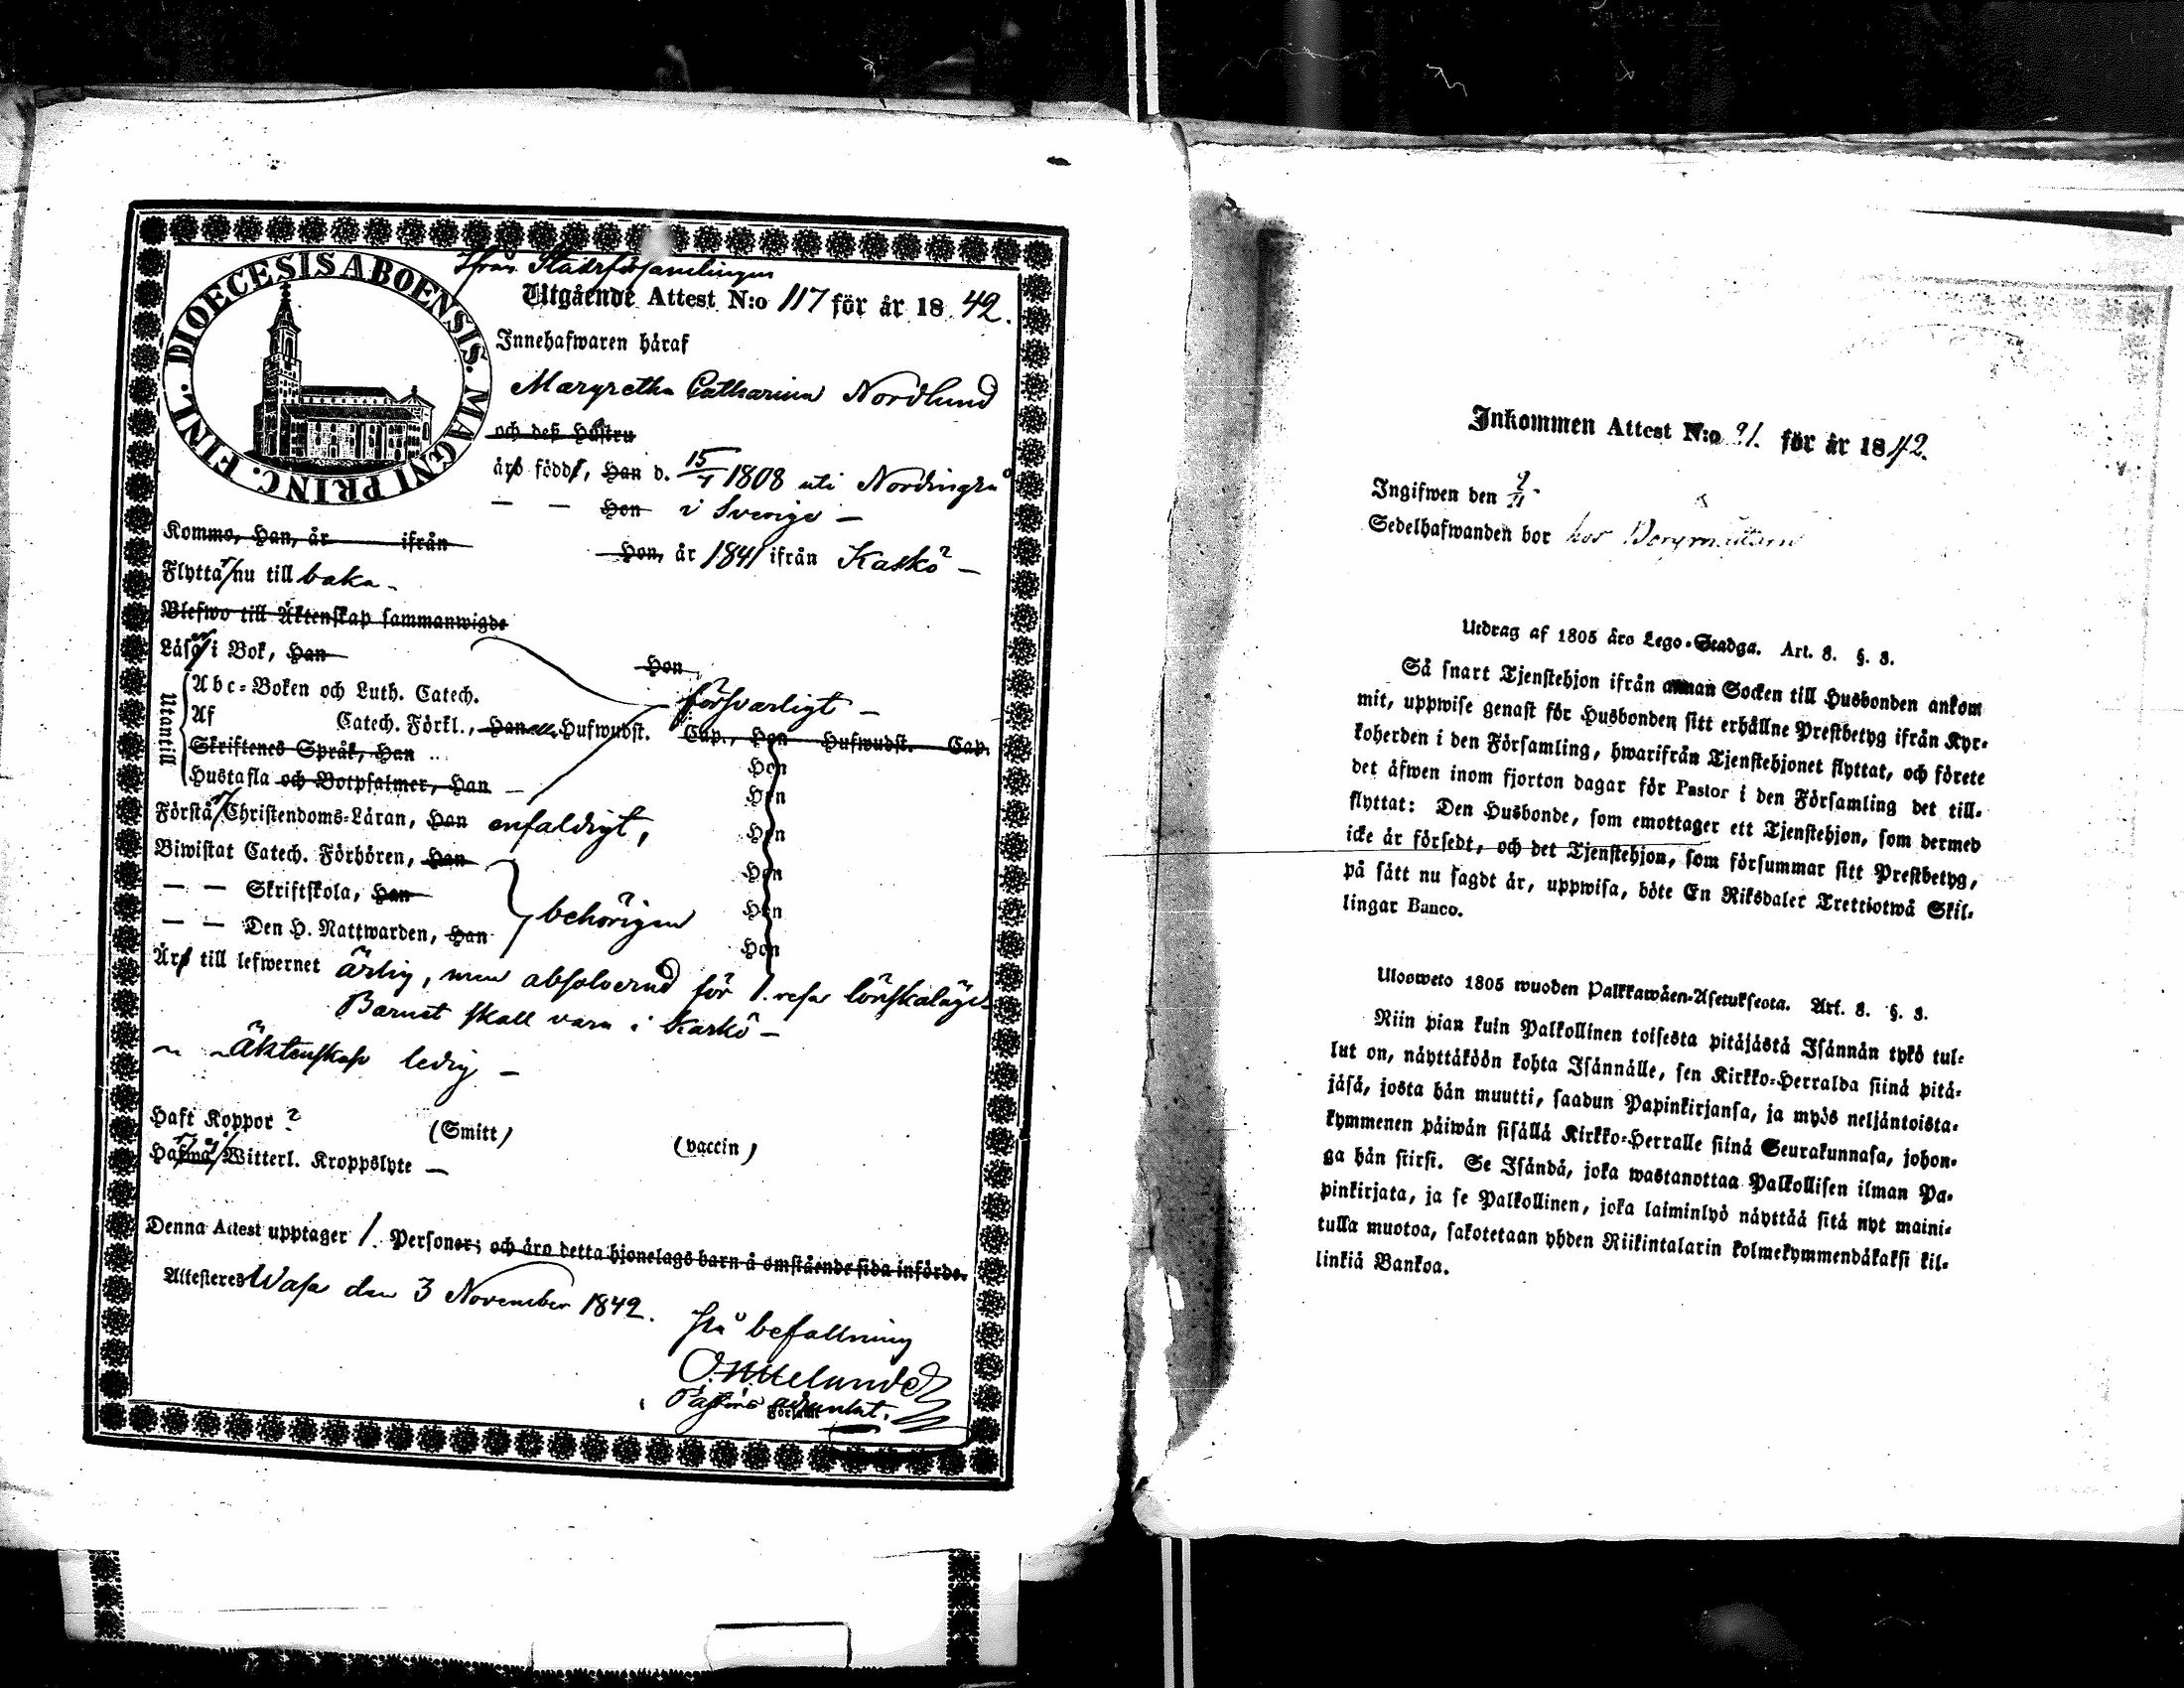 DIOECESIS ABOENSIS. MAGNI PRINC. FINL.
Ifrån Stadsförsamlingen
Utgående Attest N:o 117 för år 1842.
Innehafwaren håraf
Margretha Catharina Nordlund
och deß Hustru
är född, Han d. 15/4 1808 uti Nordingrå
— — Hon i Sverige —
Komme, Han, år ifrån
Hon, år 1841 ifrån Kaskö —
Flyttar nu till baka —
Blefwo till Äktenskap sammanwigde
Läser i Bok, Han Hon
Utantill
Abc-Boken och Luth. Catech. försvarligt —
Af Catech. Förkl., Han Hufwudst. Cap., Hon Hufwudst. Cap.
Skriftenes Språk, Han Hon
Hustafla och Botpsalmer, Han — Hon
Förstår Christendoms-Läran, Han enfaldigt, Hon
Biwistat Catech. Förhören, Han Hon
— — Skriftskola, Han behörigen Hon
— — Den H. Nattwarden, Han Hon
Är till lefwernet ärlig, men absolverad för 1. resa lönskaläge
Barnet skall vara i Kaskö —
~ ~ Äktenskap ledig —
Haft Koppor ? (Smitt) (vaccin)
Witterl. Kroppslyte —
Denna Attest upptager 1. Personer; och äro detta hjonelags barn å omstående sida införde.
Attesteres Wasa den 3 November 1842.
På befallning
Pastors adjunkt.
Församl
Inkommen Attest N:o 91. för år 1842.
Ingifwen den 9/11.
Sedelhafwanden bor hos
Utdrag af 1805 års Lego-Stadga. Art. 8. §. 3.
Så snart Tjenstehjon ifrån annan Socken till Husbonden ankom
mit, uppwise genast för Husbonden sitt erhållne Prestbetyg ifrån Kyr-
koherden i den Församling, hwarifrån Tjenstehjonet flyttat, och förete
det äfwen inom fjorton dagar för Pastor i den Församling det till-
flyttat: Den Husbonde, som emottager ett Tjenstehjon, som dermed
icke är försedt, och det Tjenstehjon, som försummar sitt Prestbetyg,
på sätt nu sagdt är, uppwisa, böte En Riksdaler Trettiotwå Skil-
lingar Banco.
Ulosweto 1805 wuoden Palkkawäen-Asetuksesta. Art. 8. §. 3.
Niin pian kuin Palkollinen toisesta pitäjästä Isännän tykö tul-
lut on, näyttäköön kohta Isännälle, sen Kirkko-Herralda siinä pitä-
jäsä, josta hän muutti, saadun Papinkirjansa, ja myös neljäntoista-
kymmenen päiwän sisällä Kirkko-Herralle siinä Seurakunnasa, johon-
ga hän siirsi. Se Isändä, joka wastanottaa Palkollisen ilman Pa-
pinkirjata, ja se Palkollinen, joka laiminlyö näyttää sitä nyt maini-
tulla muotoa, sakotetaan yhden Riikintalarin kolmekymmendäkaksi kil-
linkiä Bankoa.